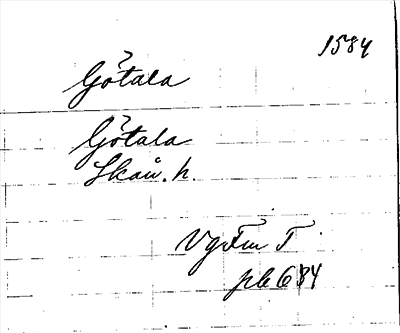 1584
Götala
Götala
Skån. h.
Vg Fm T
pb 684